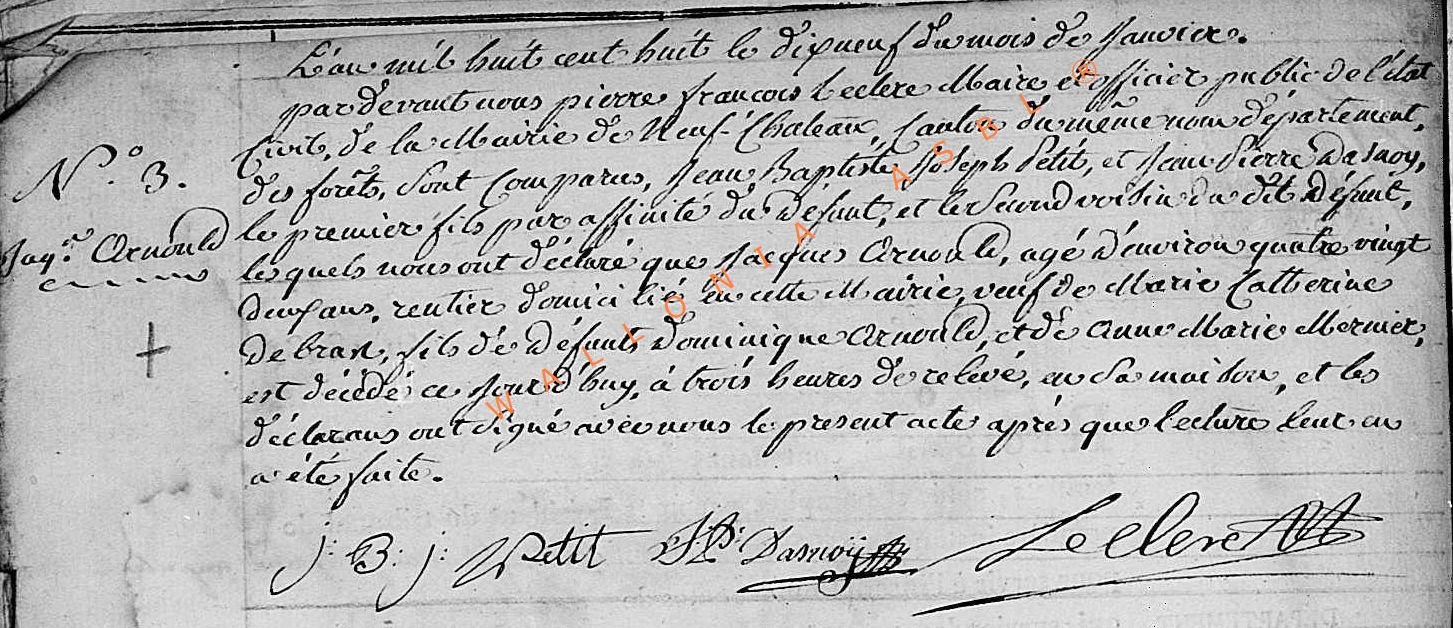 L'an mil huit cent huit le dixneuf du mois de Janvier.
pardevant nous pierre françois Leclere Maire et officier public de l'état
Civil, de la Mairie de Neuf-Chateau, Canton du même nom département,
des forêts, sont Comparus, Jean Baptiste Joseph Petit, et Jean Pierre Dasnoy,
le premier fils par affinité du Défunt, et le Second voisin du dit Défunt,
N.° 3.
Jaq. Arnould
lesquels nous ont déclaré que Jacques Arnould, agé d'environ quatre vingt
deux ans, rentier domicilié en cette Mairie, veuf de Marie Catherine
Debras, fils de Défunts Dominique Arnould, et de Anne Marie Mernier,
est décédé ce Jourd'huy, à trois heures de relevé, en Sa maison, et les
déclarans ont signé avec nous le present acte après que lecture leur en
a été faite.
j: B: j: Petit JP: Dasnoÿ Leclere
WALLONIA ASBL ®